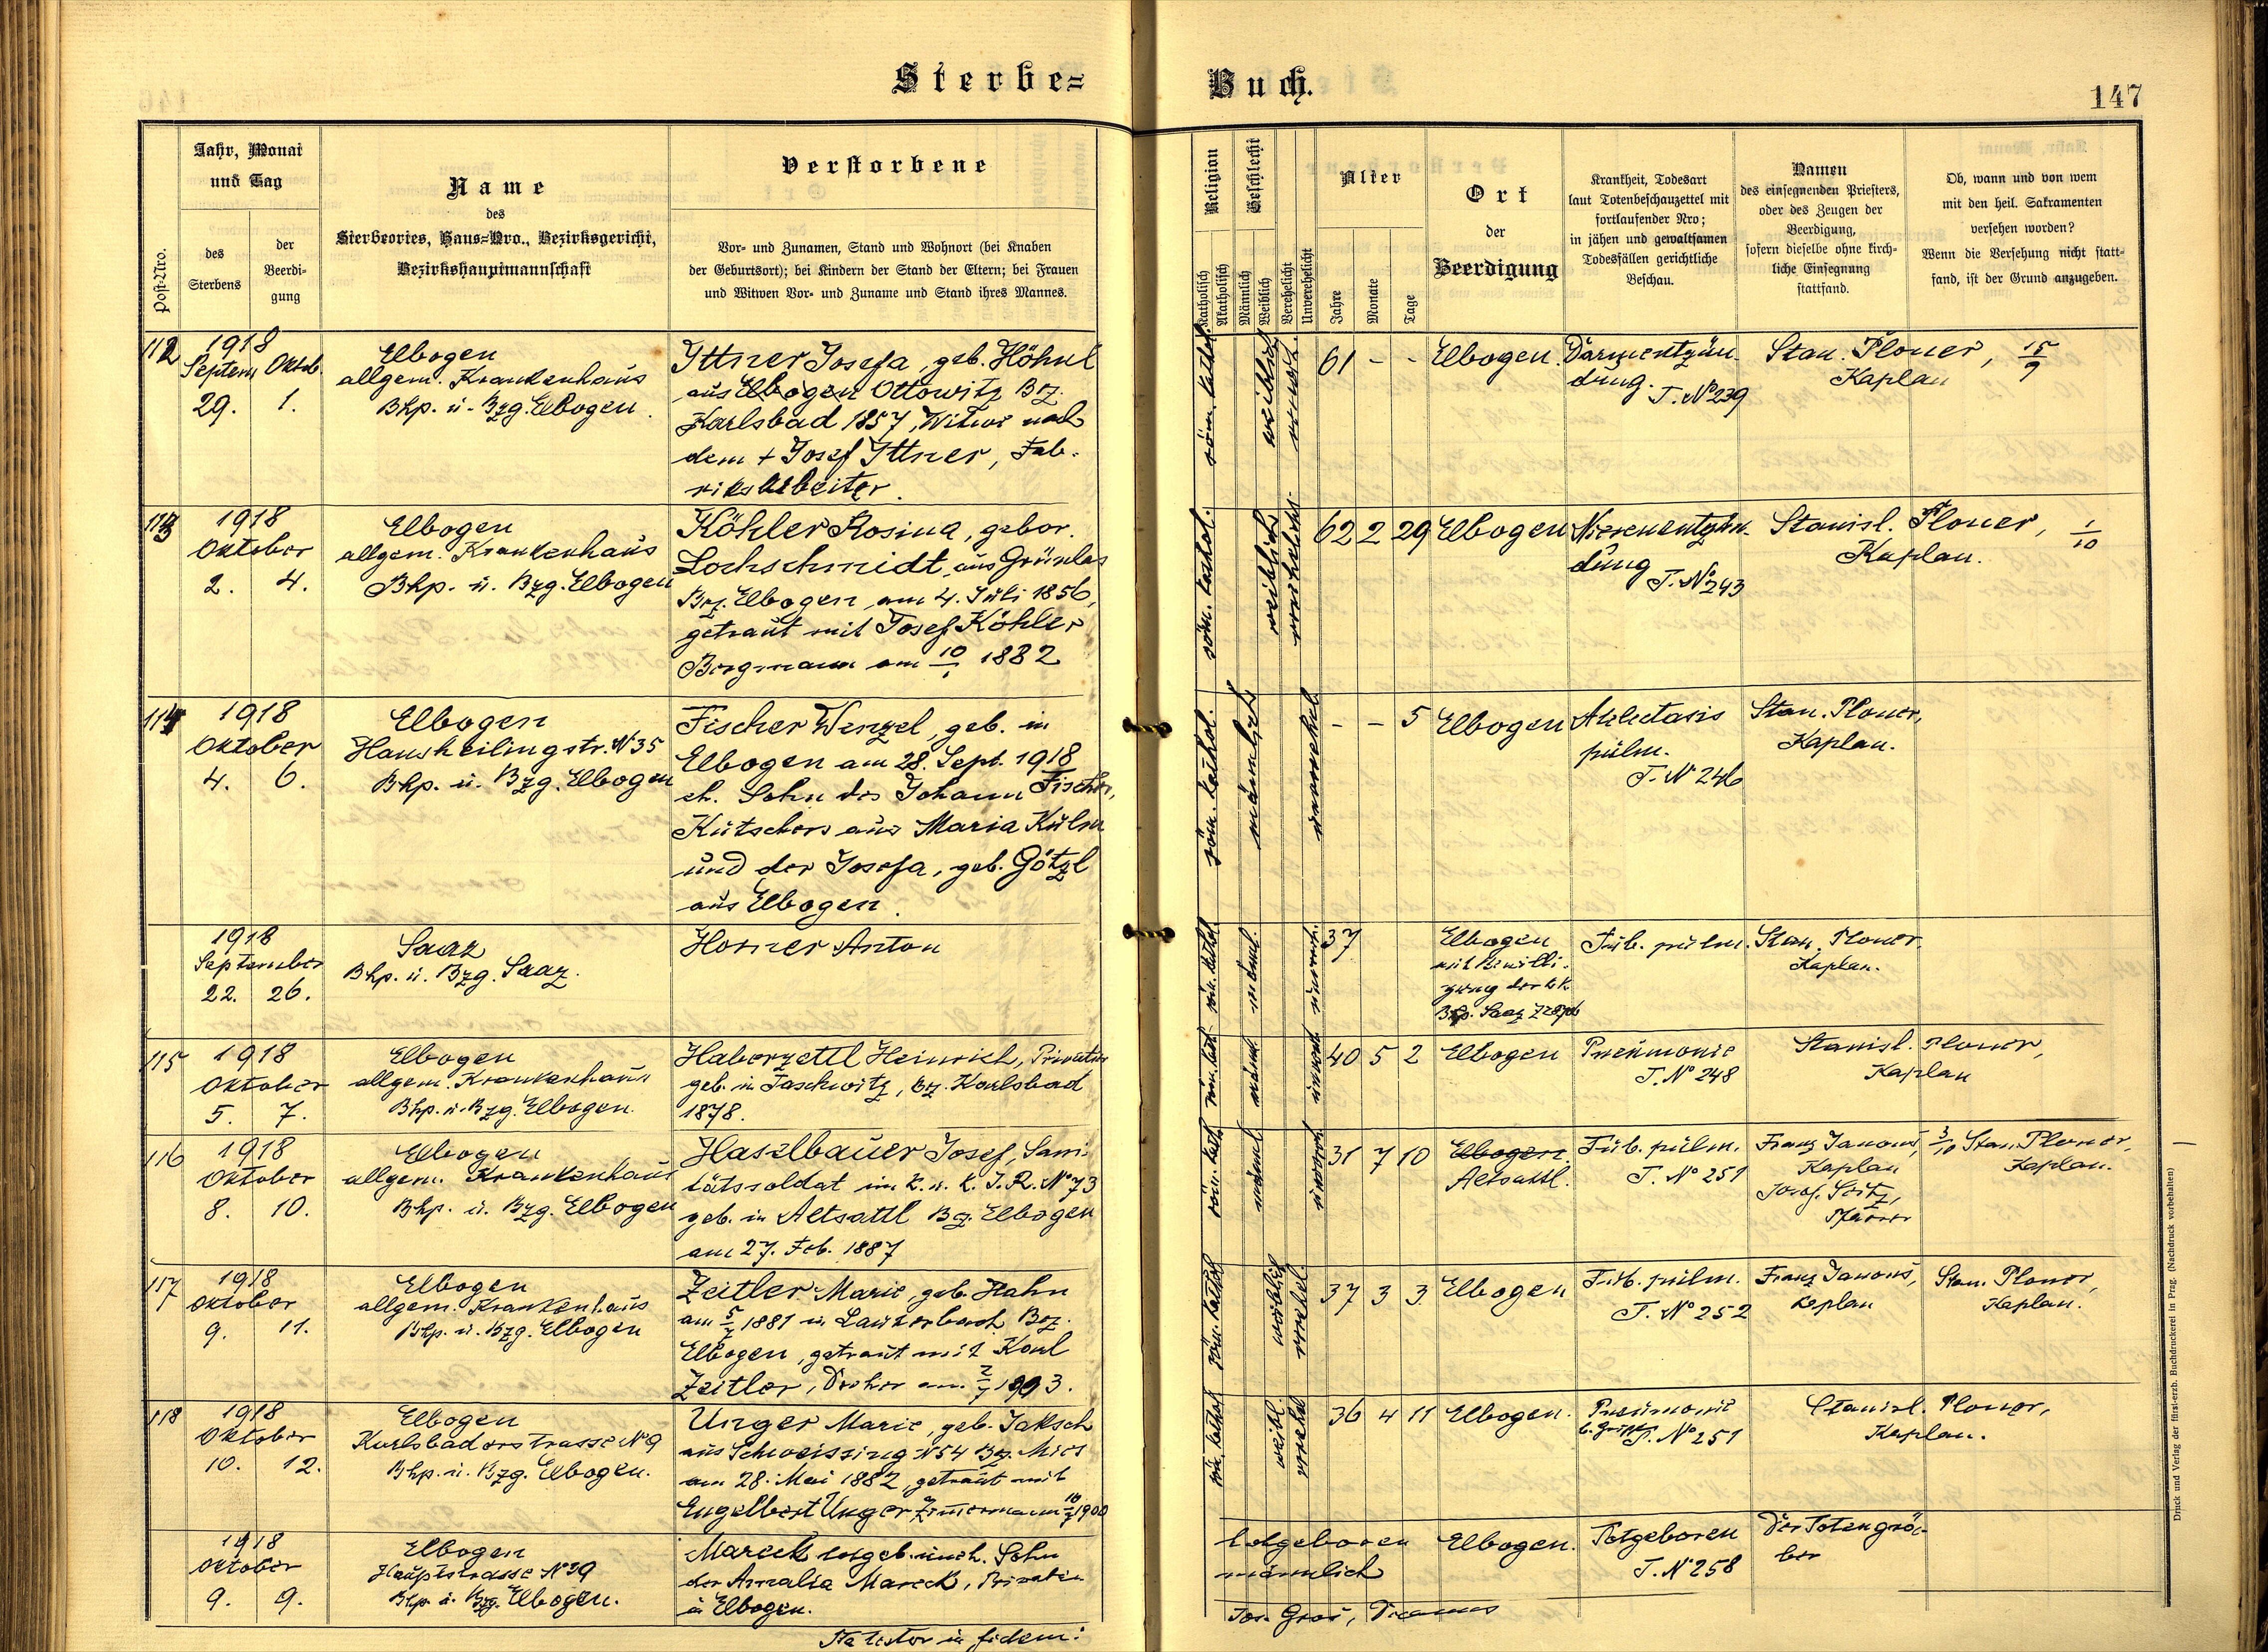 Sterbe=
Buch.
147
Post=Nro.
Jahr, Monat
und Tag
des
Sterbens
der
Beerdi=
gung
Name
des
Sterbeortes, Haus=Nro., Bezirksgericht,
Bezirkshauptmannschaft
Verstorbene
Vor= und Zunamen, Stand und Wohnort (bei Knaben
der Geburtsort); bei Kindern der Stand der Eltern; bei Frauen
und Witwen Vor= und Zuname und Stand ihres Mannes.
Religion
Katholisch
Akatholisch
Geschlecht
Männlich
Weiblich
Verehelicht
Unverehelicht
Alter
Jahre
Monate
Tage
Ort
der
Beerdigung
Krankheit, Todesart
laut Totenbeschauzettel mit
fortlaufender Nro;
in jähen und gewaltsamen
Todesfällen gerichtliche
Beschau.
Namen
des einsegnenden Priesters,
oder des Zeugen der
Beerdigung,
sofern dieselbe ohne kirch=
liche Einsegnung
stattfand.
Ob, wann und von wem
mit den heil. Sakramenten
versehen worden?
Wenn die Versehung nicht statt=
fand, ist der Grund anzugeben.
112
1918
Septem. Oktob.
29. 1.
Elbogen
allgem. Krankenhaus
Bhp. u. Bzg. Elbogen.
Ittner Josefa, geb. Höhnl
aus Elbogen Ottowitz Bz.
Karlsbad 1857, Witwe nach
dem + Josef Ittner, Fab-
riksarbeiter.
röm. kathol.
weiblich
verwit.
61 - -
Elbogen.
Darmentzün-
dung. T. No 239
Stan. Ploner,
Kaplan
15/9
113
1918
Oktober
2. 4.
Elbogen
allgem. Krankenhaus
Bhp. u. Bzg. Elbogen
Köhler Rosina, gebor.
Lochschmidt, aus Grünlas
Bez. Elbogen, am 4. Juli 1856,
getraut mit Josef Köhler
Bergmann am 1882
röm. kathol.
weiblich
verehelicht
62 2 29
Elbogen
Nierenentzün-
dung T. No 243
Stanisl. Ploner,
Kaplan.
1/10
114
1918
Oktober
4. 6.
Elbogen
Hansheilingstr. No 35
Bhp. u. Bzg. Elbogen
Fischer Wenzel, geb. in
Elbogen am 28. Sept. 1918
eh. Sohn des Johann Fischer,
Kutschers aus Maria Kulm
und der Josefa, geb. Götzl
aus Elbogen.
röm. kathol.
männlich
unverehel.
- - 5
Elbogen
Atelectasis
pulm.
T. No 246
Stan. Ploner,
Kaplan.
1918
September
22. 26.
Saaz
Bhp. u. Bzg. Saaz.
Horner Anton
röm. kathol.
männl.
37
Elbogen
mit Bewilli-
gung der k.k.
Bhp. Saaz
Tub. pulm.
Stan. Ploner
Kaplan.
115
1918
Oktober
5. 7.
Elbogen
allgem. Krankenhaus
Bhp. u. Bzg. Elbogen.
Haberzettl Heinrich, Privatier
geb. in Taschwitz, Bz. Karlsbad
1878.
röm. kath.
männl.
40 5 2
Elbogen
Pneumonie
T. No 248
Stanisl. Ploner,
Kaplan
116
1918
Oktober
8. 10.
Elbogen
allgem. Krankenhaus
Bhp. u. Bzg. Elbogen
Haselbauer Josef, Sani-
tätssoldat im k. u. k. I. R. No 73
geb. in Altsattl Bz. Elbogen
am 27. Feb. 1887
röm. kath.
männl.
31 7 10
Elbogen
Altsattl.
Tub. pulm.
T. No 251
Franz Janous,
Kaplan
Josef Seitz,
Pfarrer
3/10 Stan. Ploner,
Kaplan.
117
1918
Oktober
9. 11.
Elbogen
allgem. Krankenhaus
Bhp. u. Bzg. Elbogen
Zeitler Marie, geb. Hahn
am 5/7 1881 in Lauterbach Bez.
Elbogen, getraut mit Karl
Zeitler, Dreher am 2/7 1903.
röm. kathol.
weiblich
verehel.
37 3 3
Elbogen
Tub. pulm.
T. No 252
Franz Janous,
Kaplan
Stan. Ploner,
Kaplan.
118
1918
Oktober
10. 12.
Elbogen
Karlsbaderstrasse No 9
Bhp. u. Bzg. Elbogen.
Unger Marie, geb. Jaksch
aus Schweissing No 54 Bz. Mies
am 28. Mai 1882, getraut mit
Engelbert Unger Zimmermann 1900
röm. kathol.
weibl.
verehel.
36 4 11
Elbogen.
Pneumonie
b. Grippe T. No 251
Stanisl. Ploner,
Kaplan.
1918
Oktober
9. 9.
Elbogen
Hauptstrasse No 39
Bhp. u. Bzg. Elbogen.
Mareck totgeb. uneh. Sohn
der Amalia Mareck, Private
in Elbogen.
totgeboren
männlich
Elbogen.
Totgeboren
T. No 258
Der Totengrä-
ber
Ita testor in fidem:
Jos. Groš, Decanus
Druck und Verlag der fürst-erzb. Buchdruckerei in Prag. (Nachdruck vorbehalten)